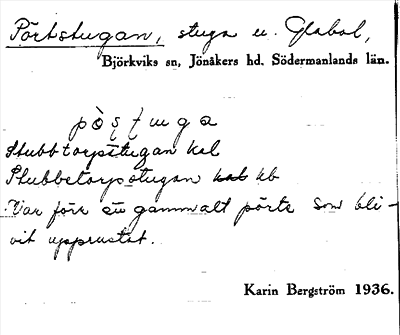 Pörtstugan, stuga u. Glabol,
Björkviks sn, Jönåkers hd. Södermanlands län.
Stubbtorpstugan kal
Stubbetorpstugan kal kb
Var förr ett gammalt pörte som bli-
vit upprustat.
Karin Bergström 1936.